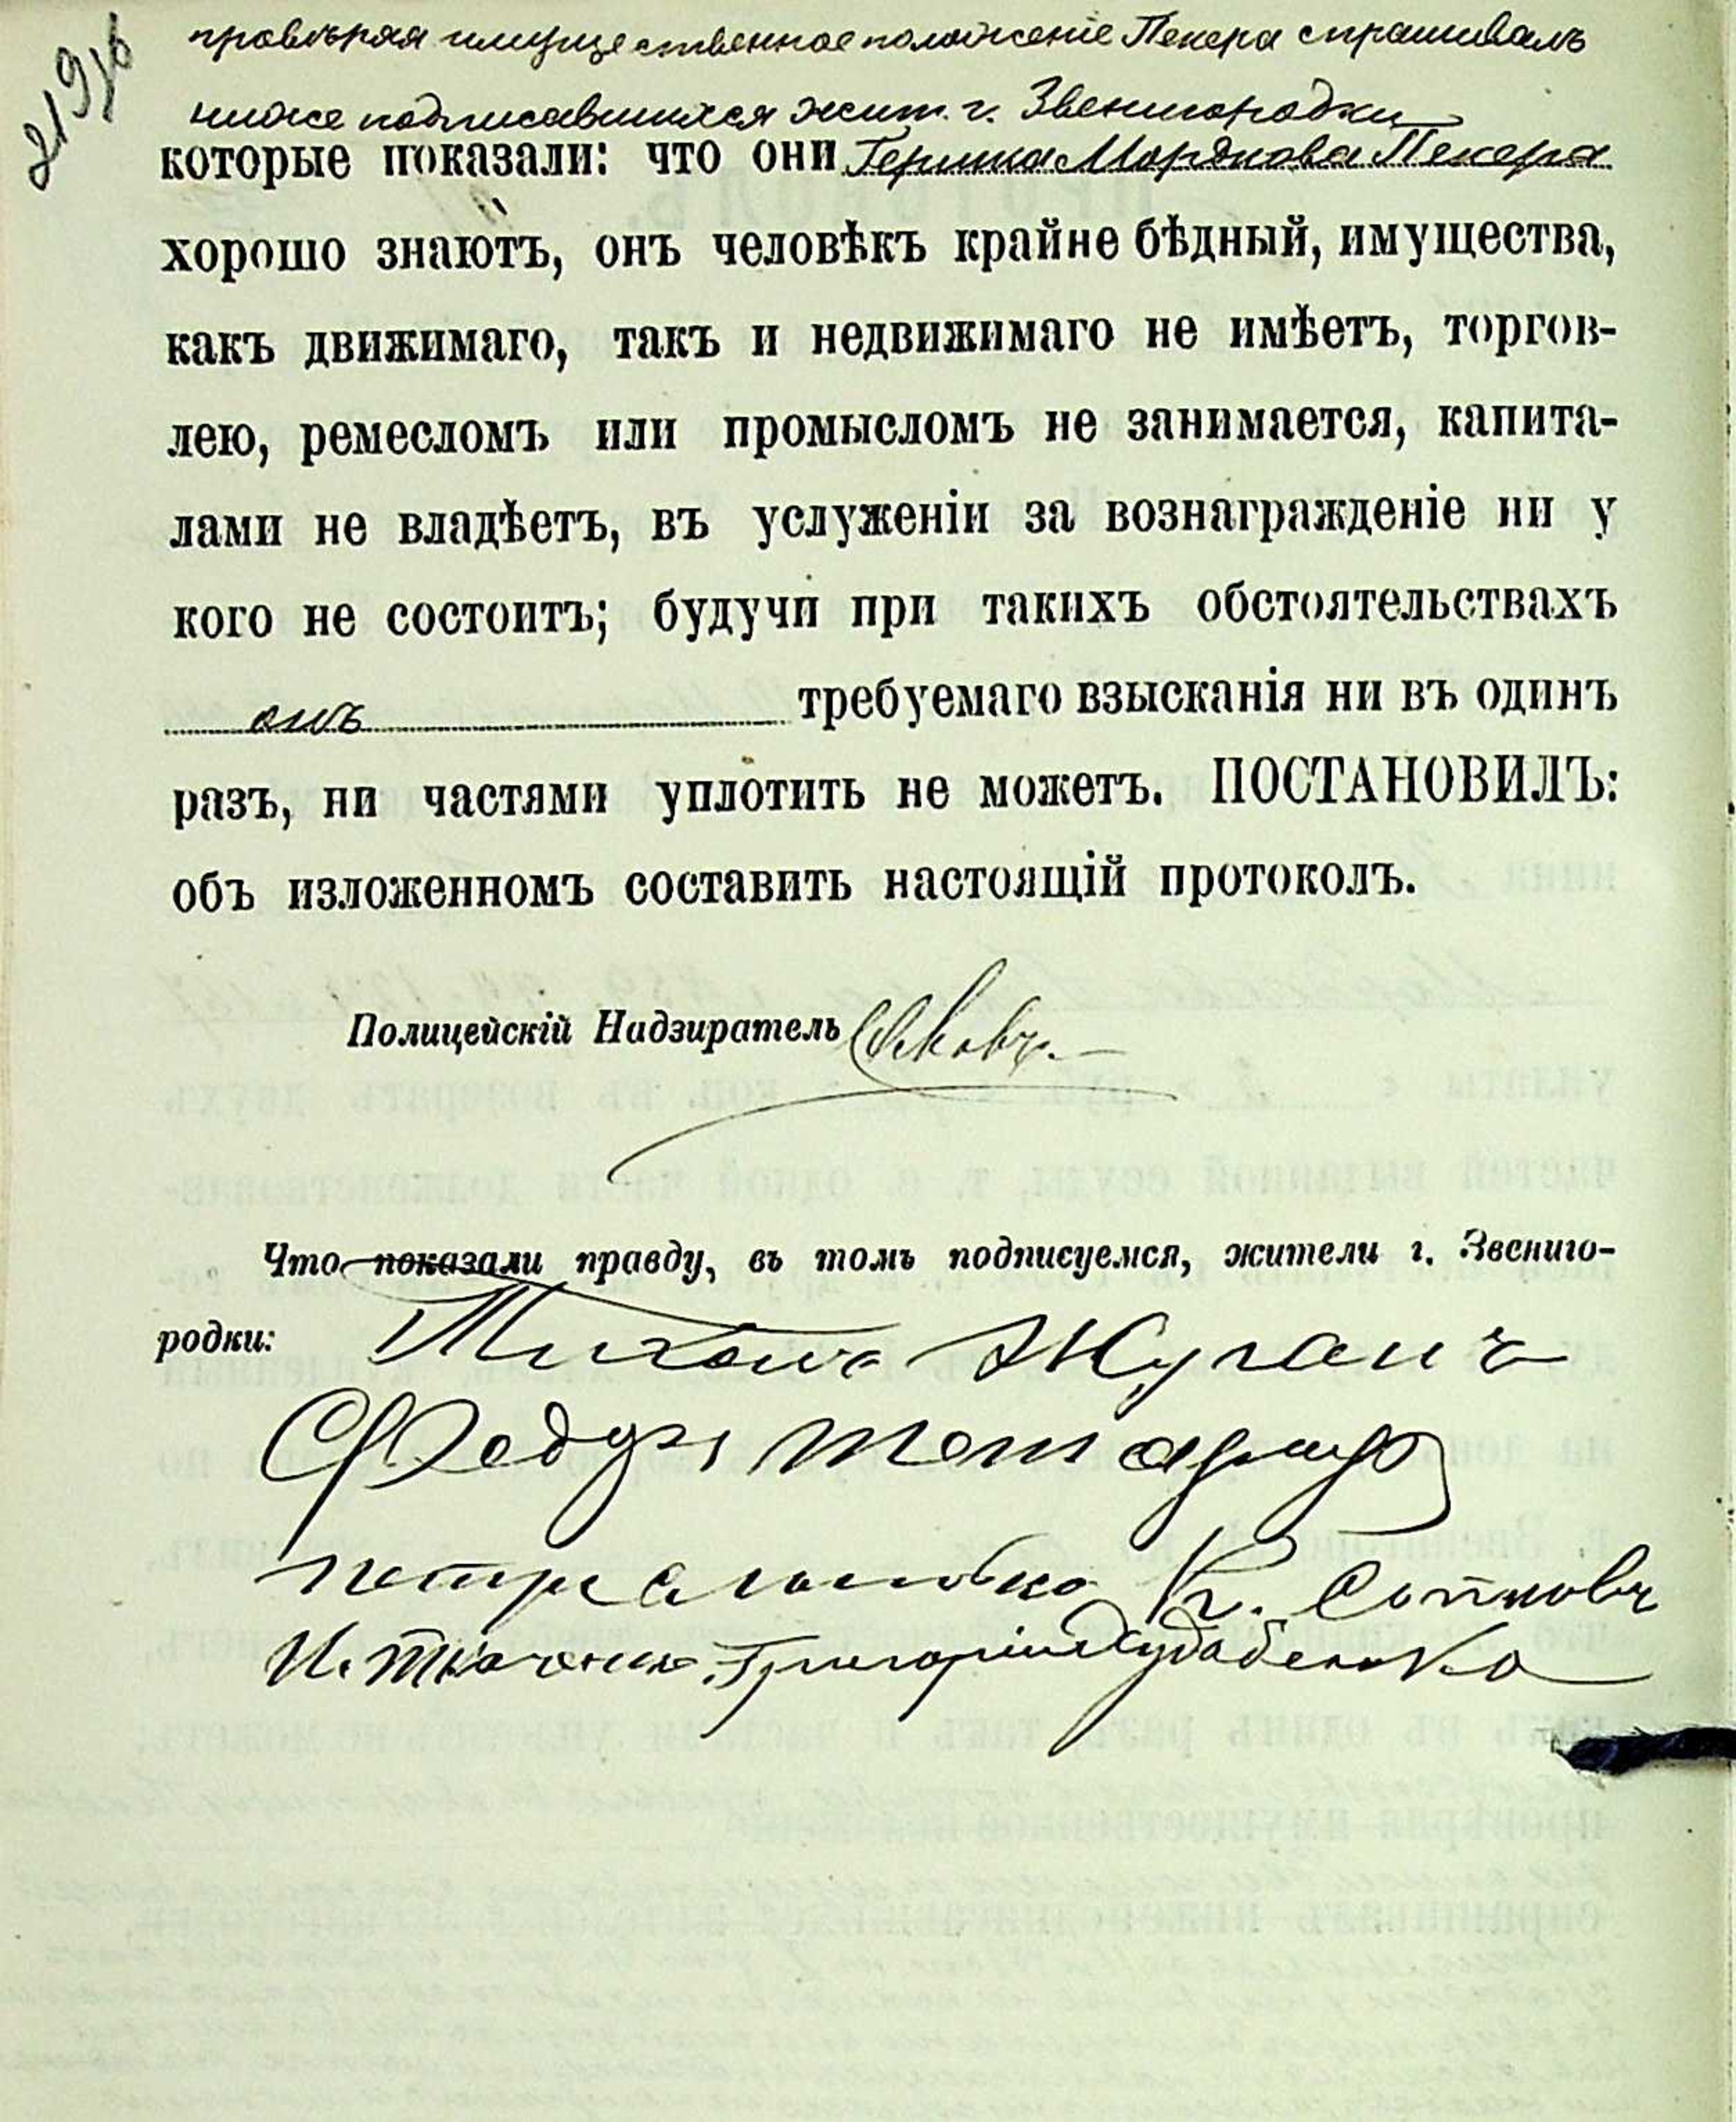 провѣряя имущественное положеніе Пекера спрашивалъ
ниже подписавшихся жит. г. Звенигородки
которые показали: что они Гершка Мордкова Пекера
хорошо знаютъ, онъ человѣкъ крайне бѣдный, имущества,
какъ движимаго, такъ и недвижимаго не имѣетъ, торгов-
лею, ремесломъ или промысломъ не занимается, капита-
лами не владѣетъ, въ услуженіи за вознагражденіе ни у
кого не состоитъ; будучи при такихъ обстоятельствахъ
онъ требуемаго взысканія ни въ одинъ
разъ, ни частями уплотить не можетъ. ПОСТАНОВИЛЪ:
объ изложенномъ составить настоящій протоколъ.
Полицейскій Надзиратель
Что показали правду, въ томъ подписуемся, жители г. Звениго-
родки: Тихонъ Жуганъ
Федор
петр К.
И. Ткаченко Григорій